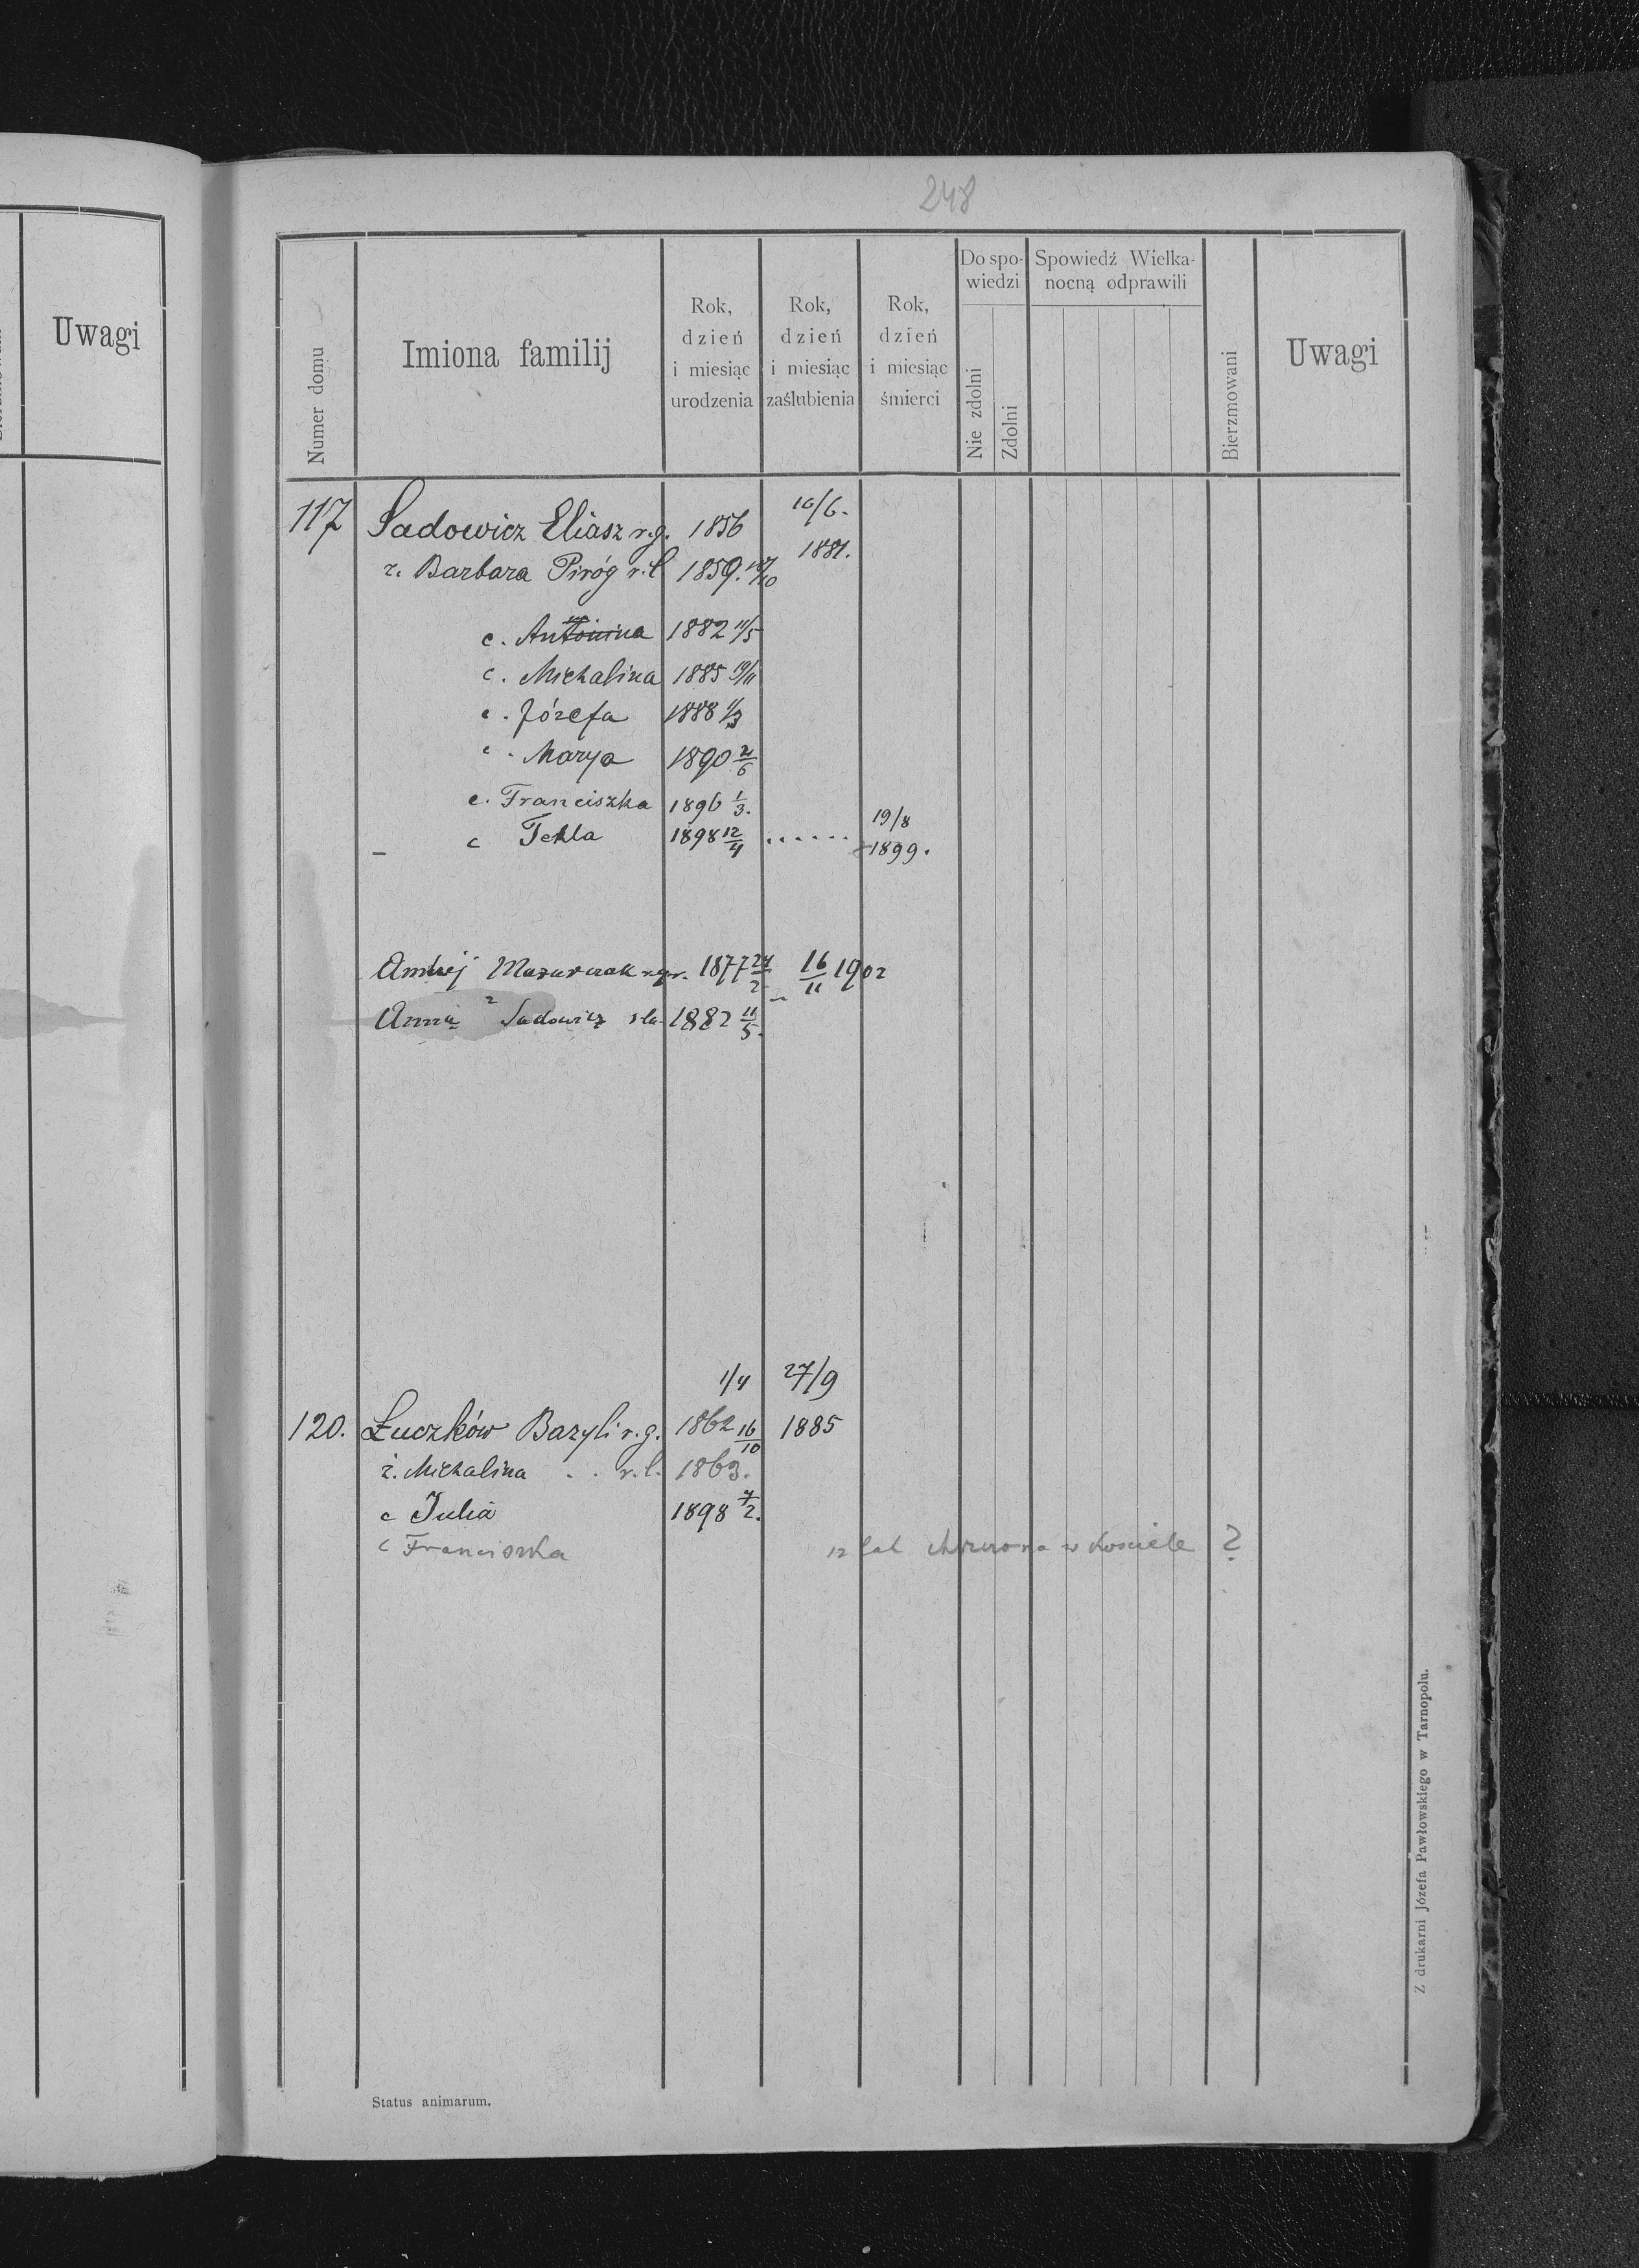 248
Uwagi
Numer domu
Imiona familij
Rok, dzień i miesiąc urodzenia
Rok, dzień i miesiąc zaślubienia
Rok, dzień i miesiąc śmierci
Do spowiedzi
Nie zdolni
Zdolni
Spowiedź Wielkanocną odprawili
Bierzmowani
Uwagi
117 Sadowicz Eliasz r.g. 1856 16/6. 1881.
ż. Barbara Piróg r.l. 1859.
c. Antonina 1882 11/5
c. Michalina 1885
c. Józefa 1888 1/3
c. Marya 1890 2/6
c. Franciszka 1896 1/3.
c Tekla 1898 12/4 ...... 19/8 1899.
Andrzej Mazurczak 1877 24/2 16/11 1902
Anna Sadowicz 1882 11/5.
1/4 27/9
120. Łuczków Bazyli r.g. 1862 16/10 1885
ż. Michalina . . r.l. 1863.
c Julia 1898 7/2.
c Franciszka 12 lat chrzczona w kościele ?
Status animarum.
Z drukarni Józefa Pawłowskiego w Tarnopolu.